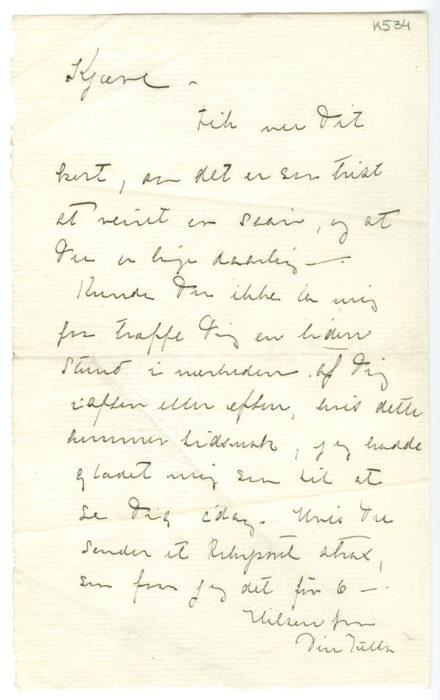 K534
Kjære –
Fik nu Dit
kort, og det er saa trist
at veiret er saa, og at
Du er lige daarlig –.
Kunde Du ikke la mig
faa træffe Dig en liden
stund i nærheden af Dig
iaften eller efterm, hvis dette
kommer tidsnok, jeg hadde
glædet mig saa til at
se Dig idag. Hvis Du
sender et Rørpost strax,
saa faar jeg det før 6 –
Hilsen fra
Din Tulla